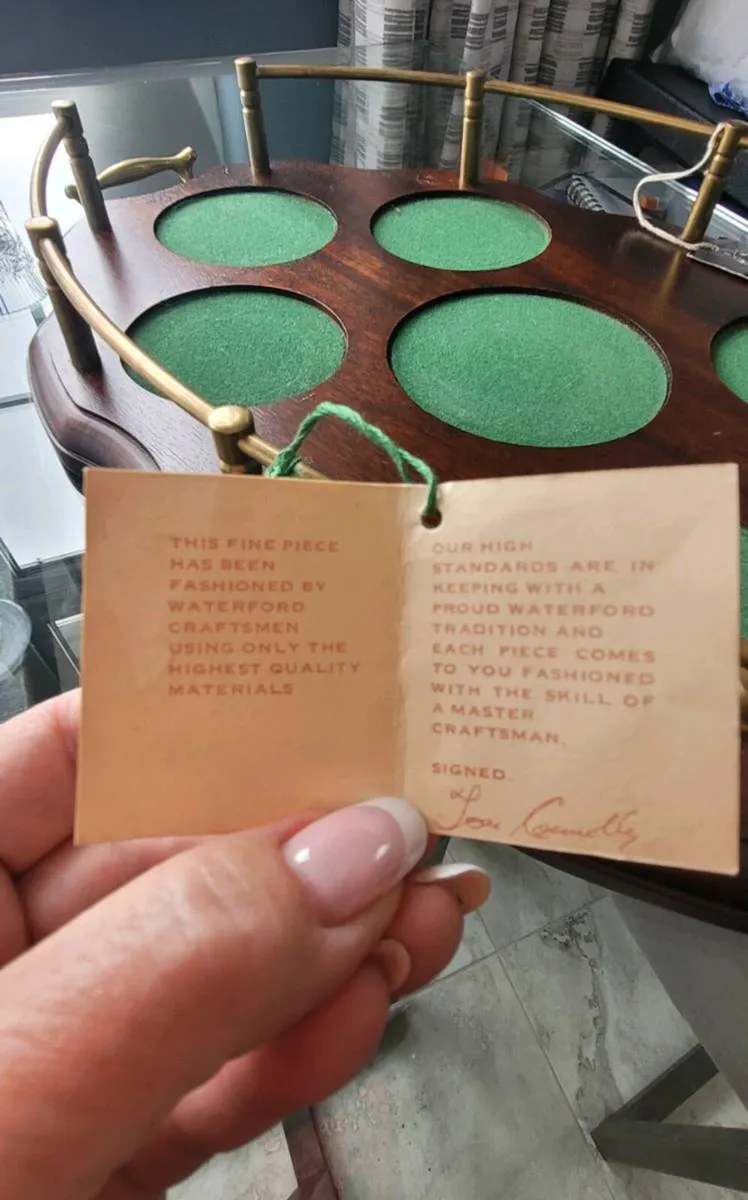 THIS FINE PIECE
HAS BEEN
FASHIONED BY
WATERFORD
CRAFTSMEN
USING ONLY THE
HIGHEST QUALITY
MATERIALS
OUR HIGH
STANDARDS ARE IN
KEEPING WITH A
PROUD WATERFORD
TRADITION AND
EACH PIECE COMES
TO YOU FASHIONED
WITH THE SKILL OF
A MASTER
CRAFTSMAN.
SIGNED.